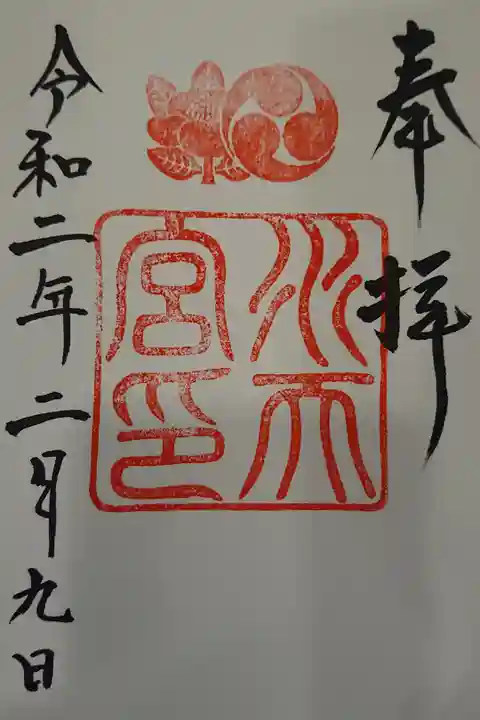 奉拝
水天宮印
令和二年二月九日